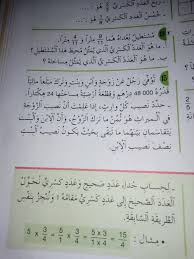 - خُمُسُ الْعَدَدِ الْكَسْرِيِّ هُوَ
مُسْتَطِيلٌ بُعْدَاهُ هُمَا
- مَا هُوَ الْعَدَدُ الْكَسْرِيُّ الَّذِي يُمَثِّلُ مُحِيطَ هَذَا الْمُسْتَطِيلِ؟
- مَا هُوَ الْعَدَدُ الْكَسْرِيُّ الَّذِي يُمَثِّلُ مِسَاحَتَهُ؟
تُوُفِّيَ رَجُلٌ عَنْ زَوْجَةٍ وَابْنٍ وَبِنْتٍ وَتَرَكَ مَبْلَغًا مَالِيًّا
قَدْرُهُ 48000 دِرْهَمٍ وَقِطْعَةً أَرْضِيَّةً مِسَاحَتُهَا 24 هِكْتَارًا.
- حَدِّدْ نَصِيبَ كُلِّ وَارِثٍ، إِذَا عَلِمْتَ أَنَّ نَصِيبَ الزَّوْجَةِ
فِي الْمِيرَاثِ هُوَ ثُمُنُ مَا تَرَكَ الزَّوْجُ، وَأَنَّ الِابْنَ وَالْبِنْتَ
يَتَقَاسَمَانِ بَيْنَهُمَا مَا تَبَقَّى بِحَيْثُ يَكُونُ نَصِيبُ الْبِنْتِ
نِصْفَ نَصِيبِ الِابْنِ.
- لِحِسَابِ جُدَاءِ عَدَدٍ صَحِيحٍ وَعَدَدٍ كَسْرِيٍّ نُحَوِّلُ
الْعَدَدَ الصَّحِيحَ إِلَى عَدَدٍ كَسْرِيٍّ مَقَامُهُ 1 وَنُنْجِزُ بِنَفْسِ
الطَّرِيقَةِ السَّابِقَةِ.
• مِثَال : 5 × 3/4 = 5/1 × 3/4 = 5 x 3/1 x 4 = 15/4